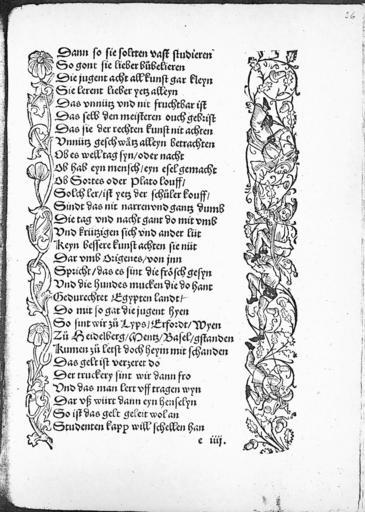 26
Dann so sie soltten vast studieren
So gont sie lieber bůbelieren
Die jugent acht all kunst gar kleyn
Sie lerent lieber yetz alleyn
Das vnnütz vnd nit fruchtbar ist
Das selb den meisteren ouch gebrist
Das sie der rechten kunst nit achten
Vnnütz geschwätz alleyn betrachten
Ob es well tag syn / oder nacht
Ob hab eyn mensch / eyn esel gemacht
Ob Sortes oder Plato louff /
Solch ler / ist yetz der schůler kouff /
Sindt das nit narren vnd gantz dumb
Die tag vnd nacht gant do mit vmb
Vnd krützigen sich vnd ander lüt
Keyn bessere kunst achten sie nüt
Dar vmb Origenes / von jnn
Spricht / das es sint die frösch gesyn
Vnd die hundes mucken die do hant
Gedurechtet Egypten landt /
Do mit so gat die jugent hyen
So sint wir zů Lyps / Erfordt / Wyen
Zů Heidelberg / Mentz / Basel / gstanden
Kumen zů letst doch heym mit schanden
Das gelt ist verzeret do
Der truckery sint wir dann fro
Vnd das man lert vff tragen wyn
Dar vß würt dann eyn henselyn
So ist das gelt geleit wol an
Studenten kapp will schellen han
e iiij.